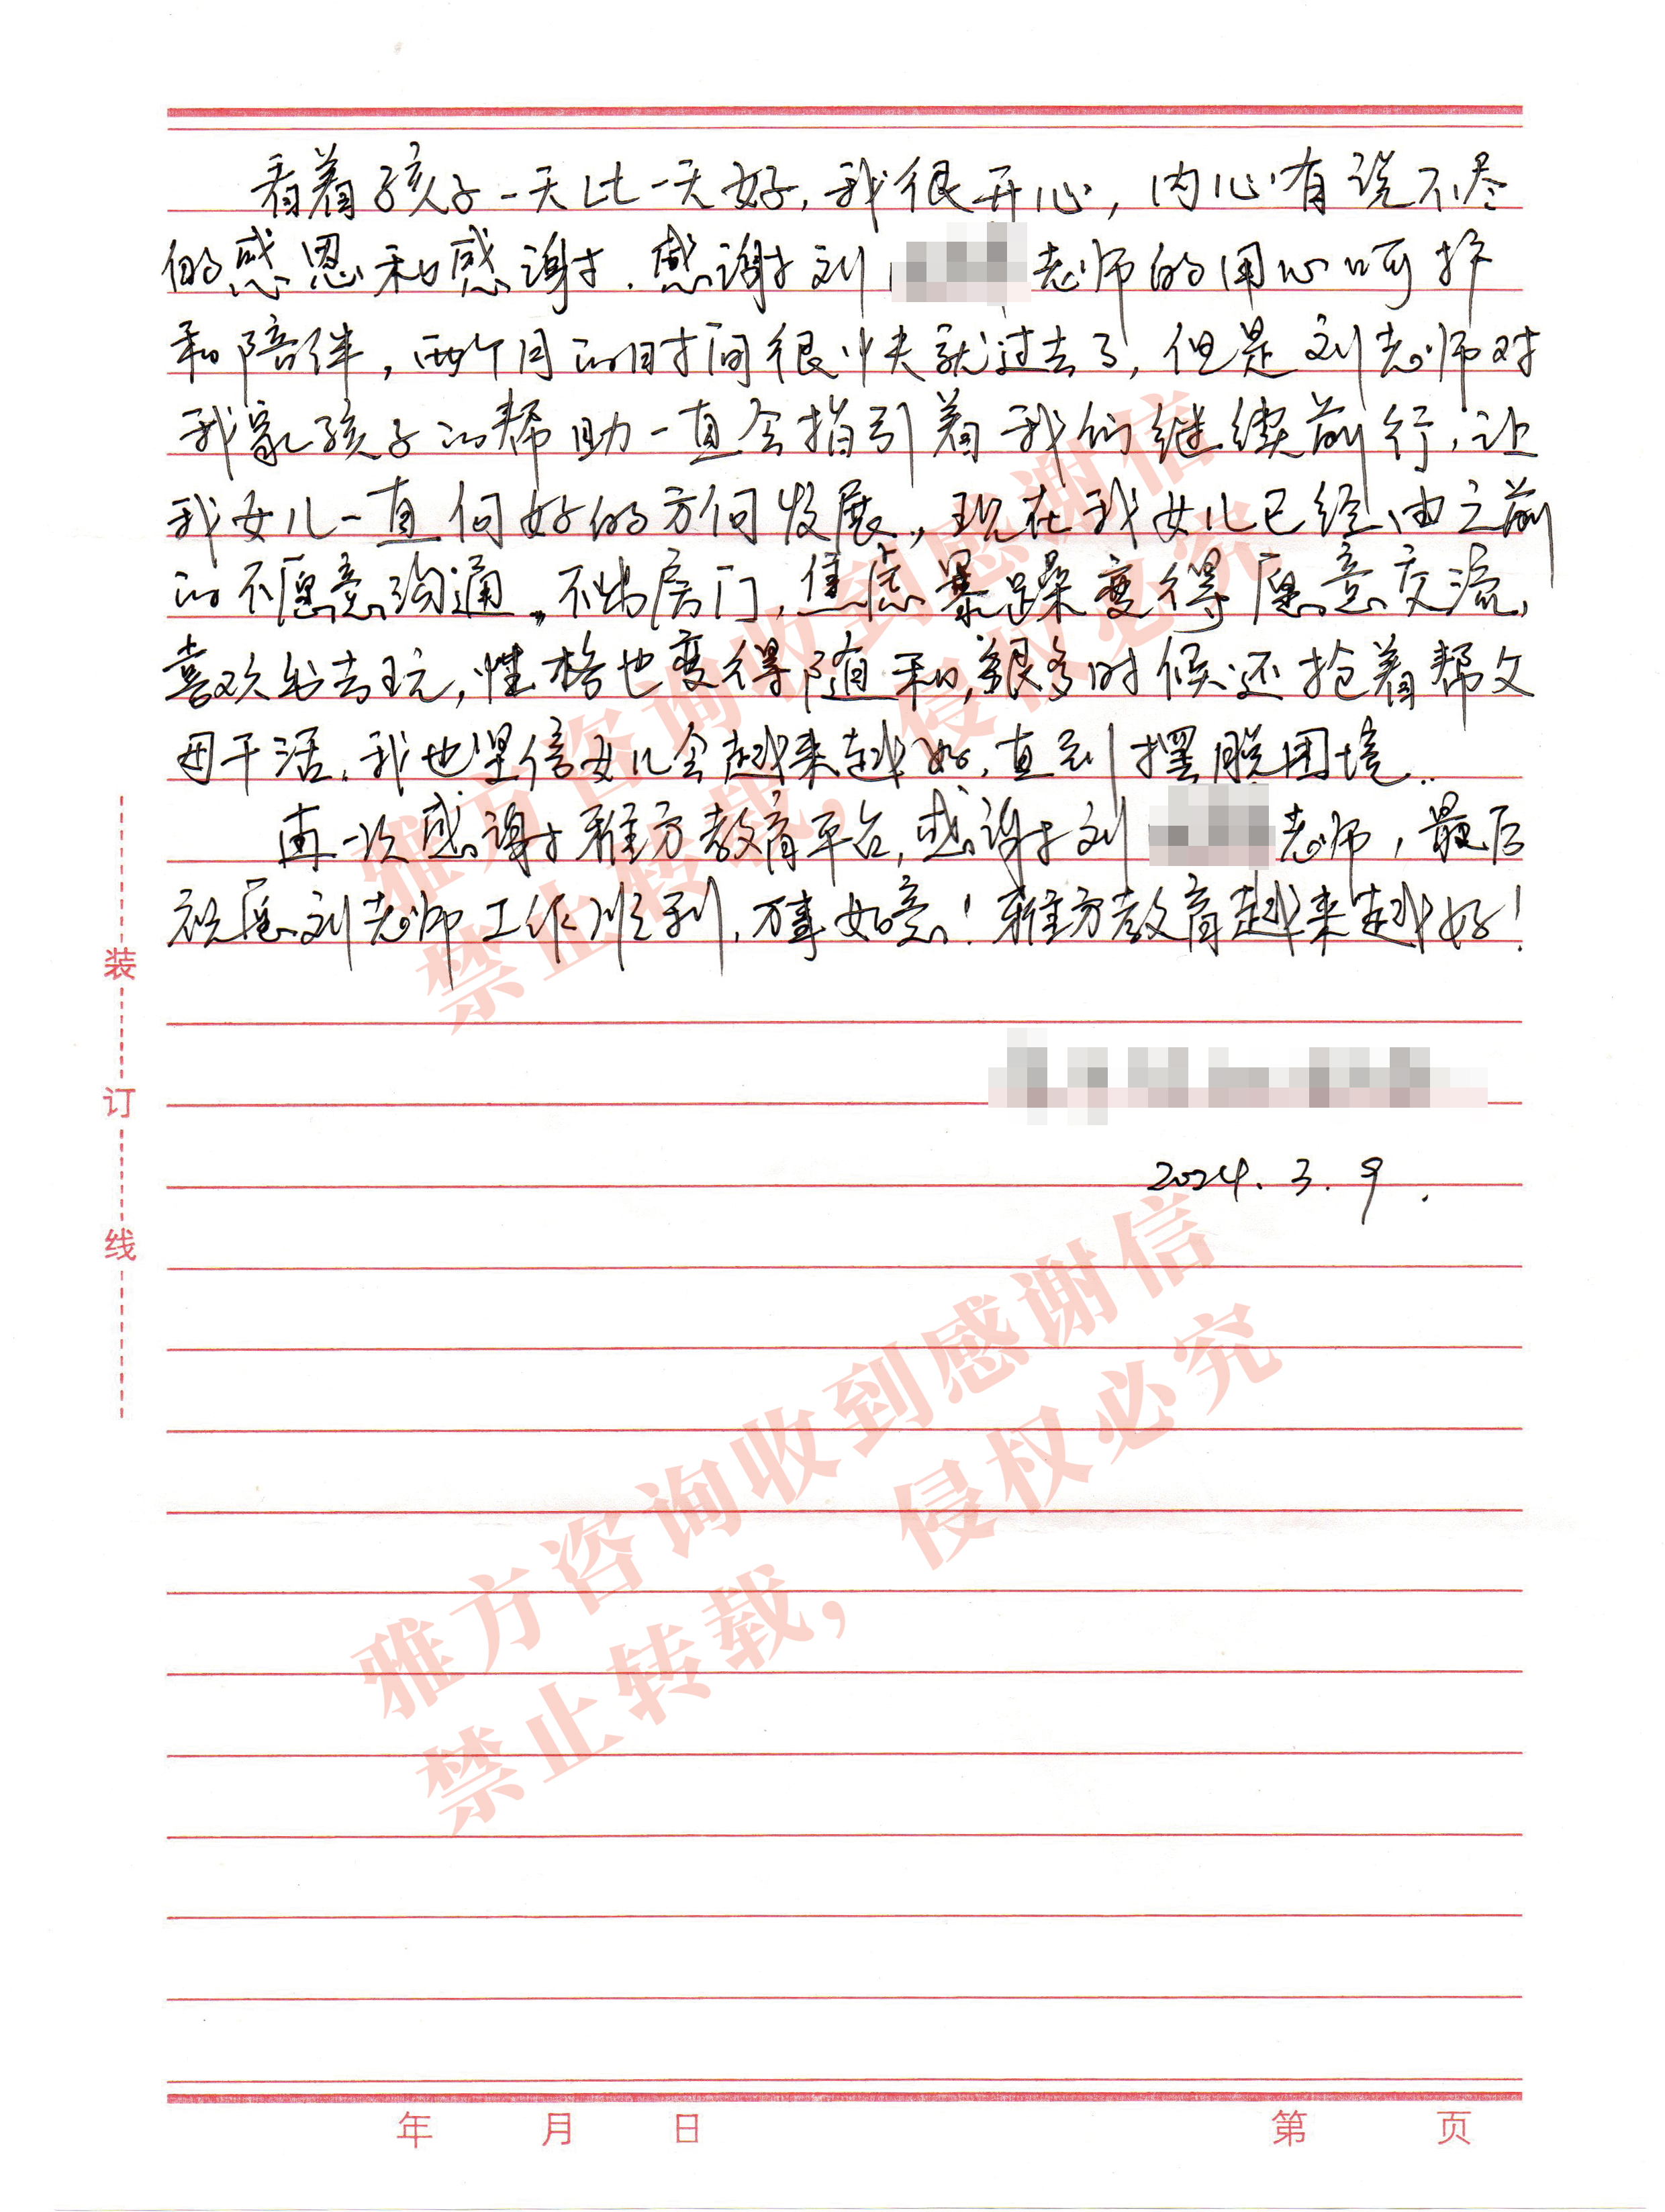 看着孩子一天比一天好，我很开心，内心有说不尽
的感恩和感谢．感谢刘 老师的用心呵护
和陪伴，两个月的时间很快就过去了，但是刘老师对
我家孩子的帮助一直会指引着我们继续前行，让
我女儿一直向好的方向发展，现在我女儿已经由之前
的不愿意沟通，不出房门，焦虑暴躁变得愿意交流，
喜欢出去玩，性格也变得随和，很多时候还抢着帮父
母干活．我也坚信女儿会越来越好，直到摆脱困境．
再一次感谢雅方教育平台，感谢刘 老师，最后
祝愿刘老师工作顺利，万事如意！雅方教育越来越好！
2024. 3. 9 .
装
订
线
雅方咨询收到感谢信
禁止转载，侵权必究
雅方咨询收到感谢信
禁止转载，侵权必究
年 月 日 第 页